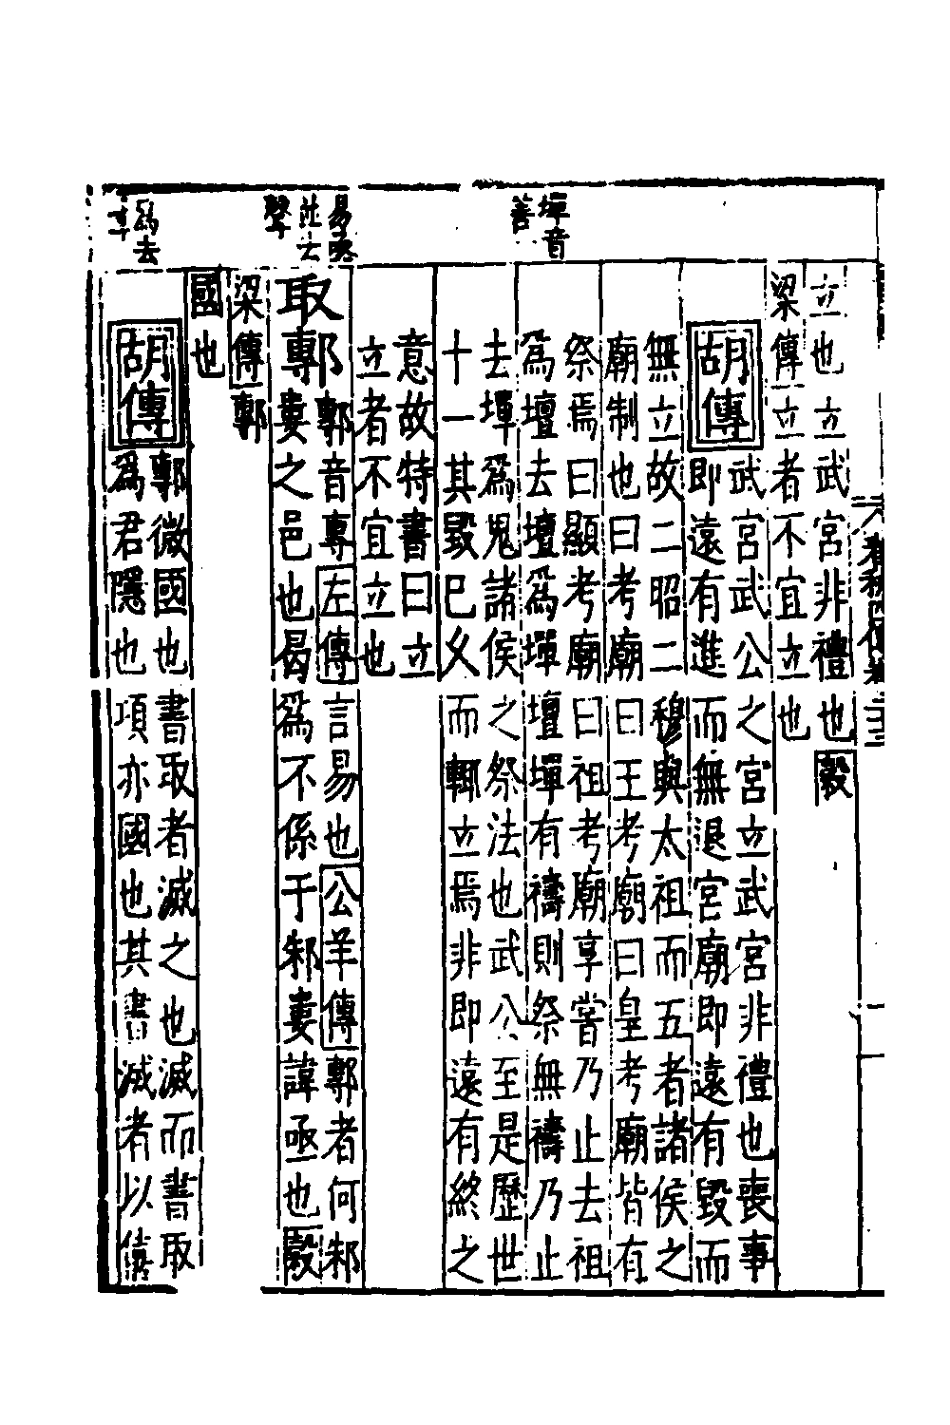 立也立武宮非禮也穀
梁傳立者不宜立也
胡傳
武宮武公之宮立武宮非禮也喪事
即遠有進而無退宮廟即遠有毀而
無立故二昭二穆與太祖而五者諸侯之
廟制也曰考廟曰王考廟曰皇考廟皆有
祭焉曰顯考廟曰祖考廟享嘗乃止去祖
為壇去壇為墠壇墠有禱則祭無禱乃止
去墠為鬼諸侯之祭法也武公至是歷世
十一其毀已乆而輙立焉非即遠有終之
意故特書曰立
立者不宜立也
取鄟
鄟音專左傳言易也公羊傳鄟者何邾
婁之邑也曷為不係于邾婁諱亟也穀
梁傳鄟
國也
胡傳
鄟微國也書取者滅之也滅而書取
為君隱也項亦國也其書滅者以僖
墠音
善
易去
聲
為去